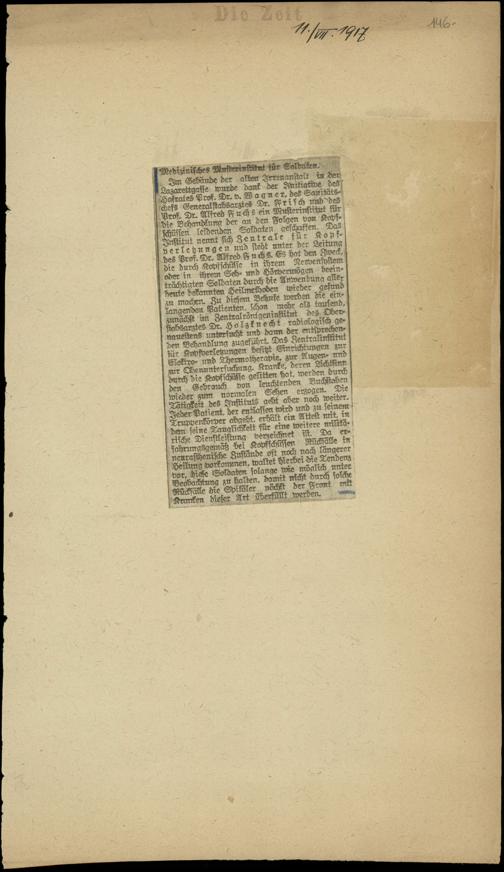 Die Zeit
11./VII. 1917
146.
Medizinisches Musterinstitut für Soldaten.
Im Gebäude der alten Irrenanstalt in der
Lazarettgasse wurde dank der Initiative des
Hofrates Prof. Dr. v. Wagner, des Sanitäts-
chefs Generalstabsarztes Dr. Frisch und des
Prof. Dr. Alfred Fuchs ein Musterinstitut für
die Behandlung der an den Folgen von Kopf-
schüssen leidenden Soldaten geschaffen. Das
Institut nennt sich Zentrale für Kopf-
verletzungen und steht unter der Leitung
des Prof. Dr. Alfred Fuchs. Es hat den Zweck,
die durch Kopfschüsse in ihrem Nervensystem
oder in ihrem Seh- und Hörvermögen beein-
trächtigten Soldaten durch die Anwendung aller
heute bekannten Heilmethoden wieder gesund
zu machen. Zu diesem Behufe werden die ein-
langenden Patienten, schon mehr als tausend,
zunächst im Zentralröntgeninstitut des Ober-
stabsarztes Dr. Holzknecht radiologisch ge-
nauestens untersucht und dann der entsprechen-
den Behandlung zugeführt. Das Zentralinstitut
für Kopfverletzungen besitzt Einrichtungen zur
Elektro- und Thermotherapie, zur Augen- und
zur Ohrenuntersuchung. Kranke, deren Lichtsinn
durch die Kopfschüsse gelitten hat, werden durch
den Gebrauch von leuchtenden Buchstaben
wieder zum normalen Sehen erzogen. Die
Tätigkeit des Instituts geht aber noch weiter.
Jeder Patient, der entlassen wird und zu seinem
Truppenkörper abgeht, erhält ein Attest mit, in
dem seine Tauglichkeit für eine weitere militä-
rische Dienstleistung verzeichnet ist. Da er-
fahrungsgemäß bei Kopfschüssen Rückfälle in
neurasthenische Zustände oft noch nach längerer
Heilung vorkommen, waltet hierbei die Tendenz
vor, diese Soldaten solange wie möglich unter
Beobachtung zu halten, damit nicht durch solche
Rückfälle die Spitäler nächst der Front mit
Kranken dieser Art überfüllt werden.